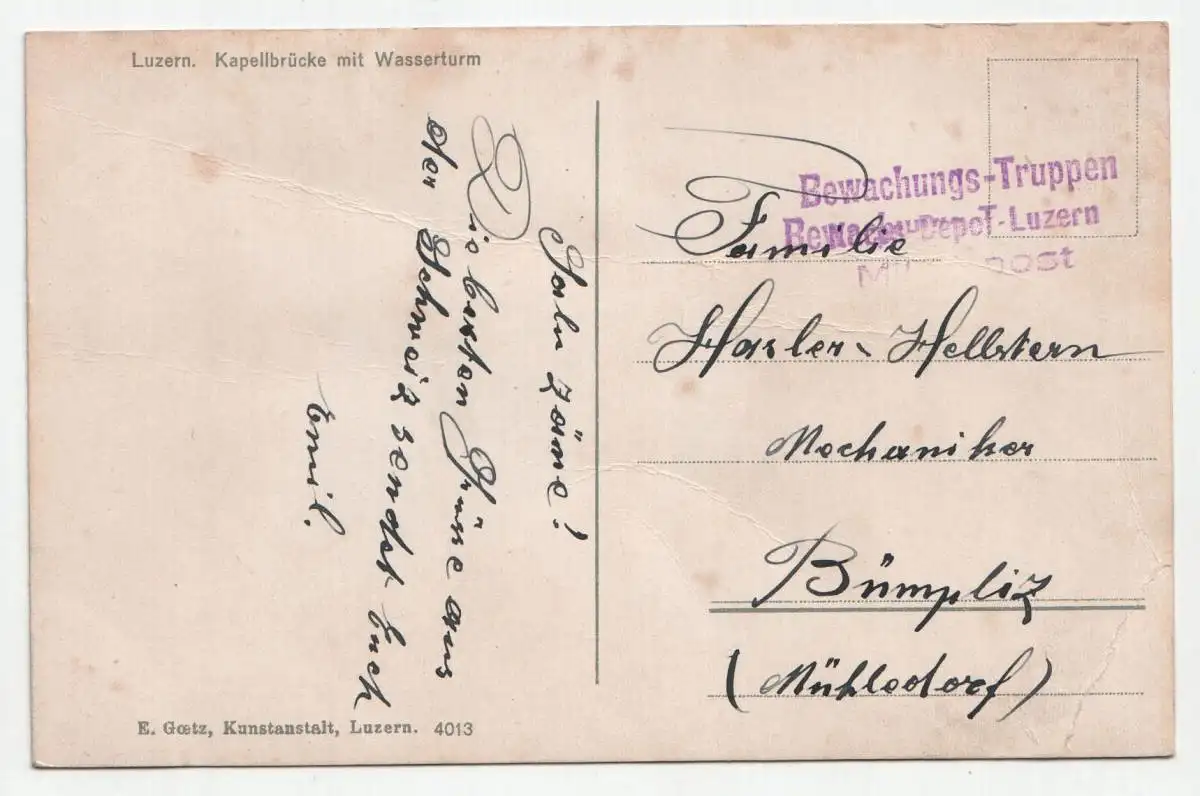 Luzern. Kapellbrücke mit Wasserturm
Salü zäme!
Die besten Grüsse aus
der Schweiz sendet Euch
Emil.
E. Gœtz, Kunstanstalt, Luzern. 4013
Bewachungs-Truppen
DepoT-Luzern
Familie
Hasler-Hellstern
Mechaniker
Bümpliz
(Mühledorf)